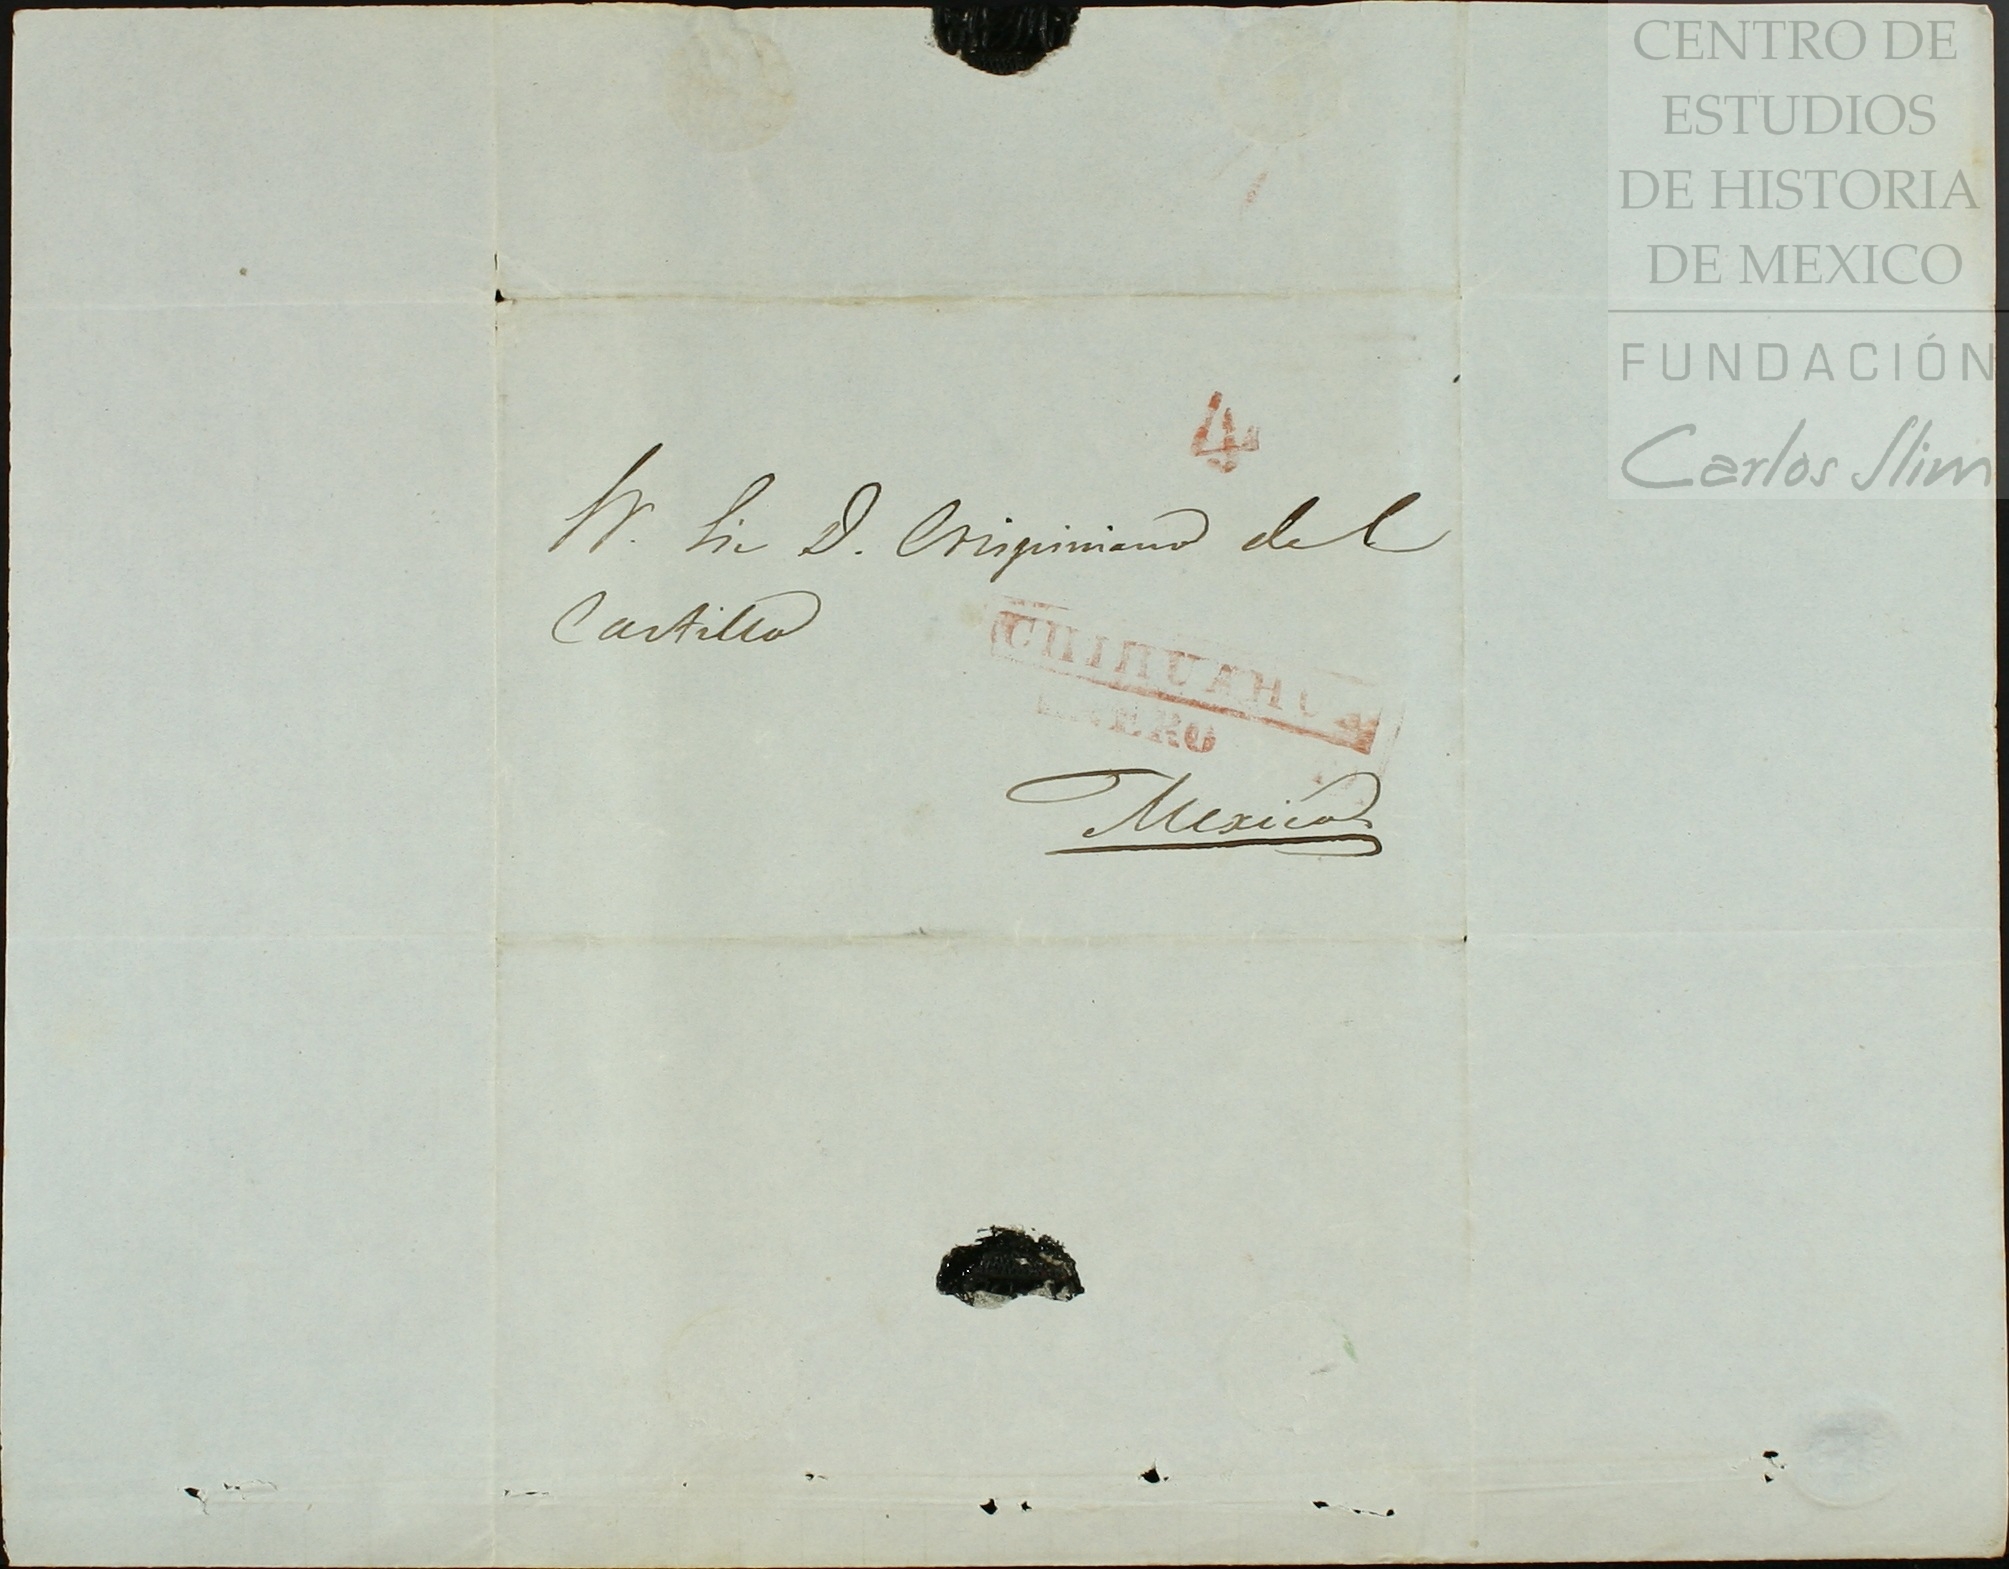 CENTRO DE
ESTUDIOS
DE HISTORIA
DE MEXICO
FUNDACIÓN
Carlos Slim
4
Sr. Lic D. Crispiniano del
Castillo
CHIHUAHUA
ENERO
Mexico.